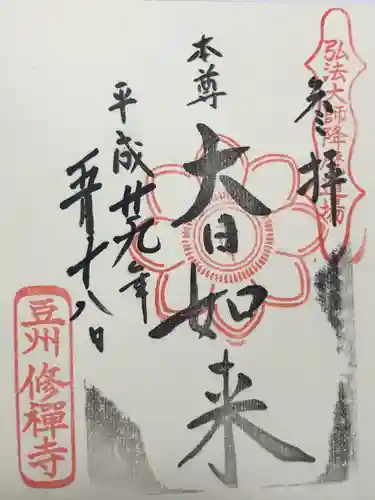 参拝
弘法大師降誕道場
本尊
大日如来
平成廿九年
五月十八日
豆州修禪寺